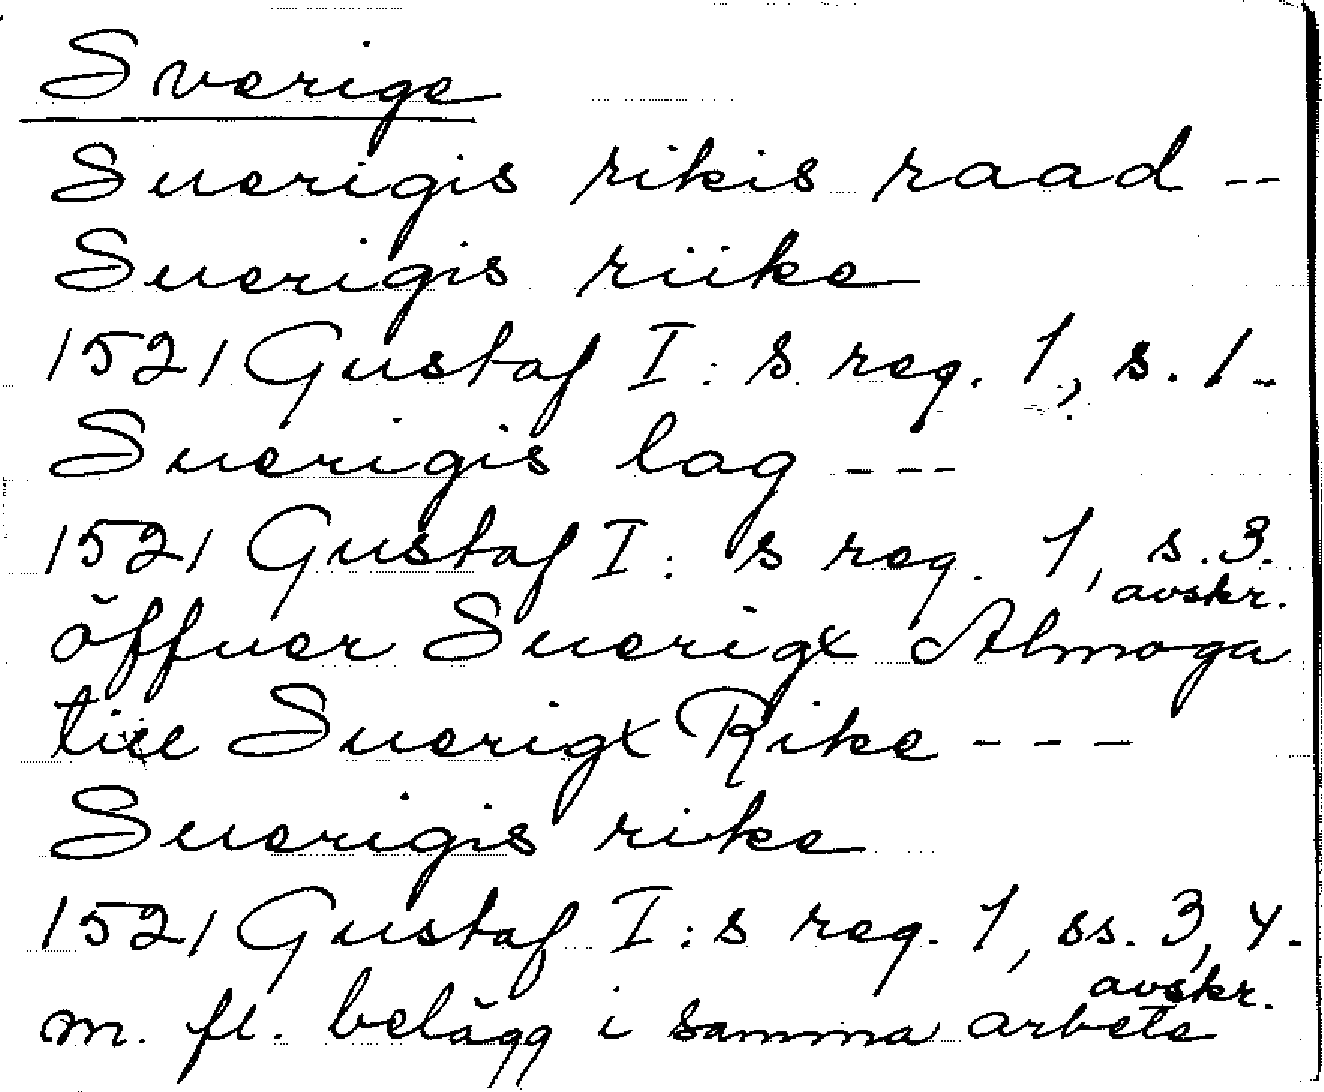 Sverige
Suerigis rikis raad --
Suerigis riike
1521 Gustaf I: s reg. 1, s. 1.
Suerigis lag ---
1521 Gustaf I: s reg. 1, s. 3.
avskr.
öffuer Suerigx Almoga
till Suerigx Rike ---
Suerigis rike
1521 Gustaf I: s reg. 1, ss. 3, 4.
avskr.
m. fl. belägg i samma arbete